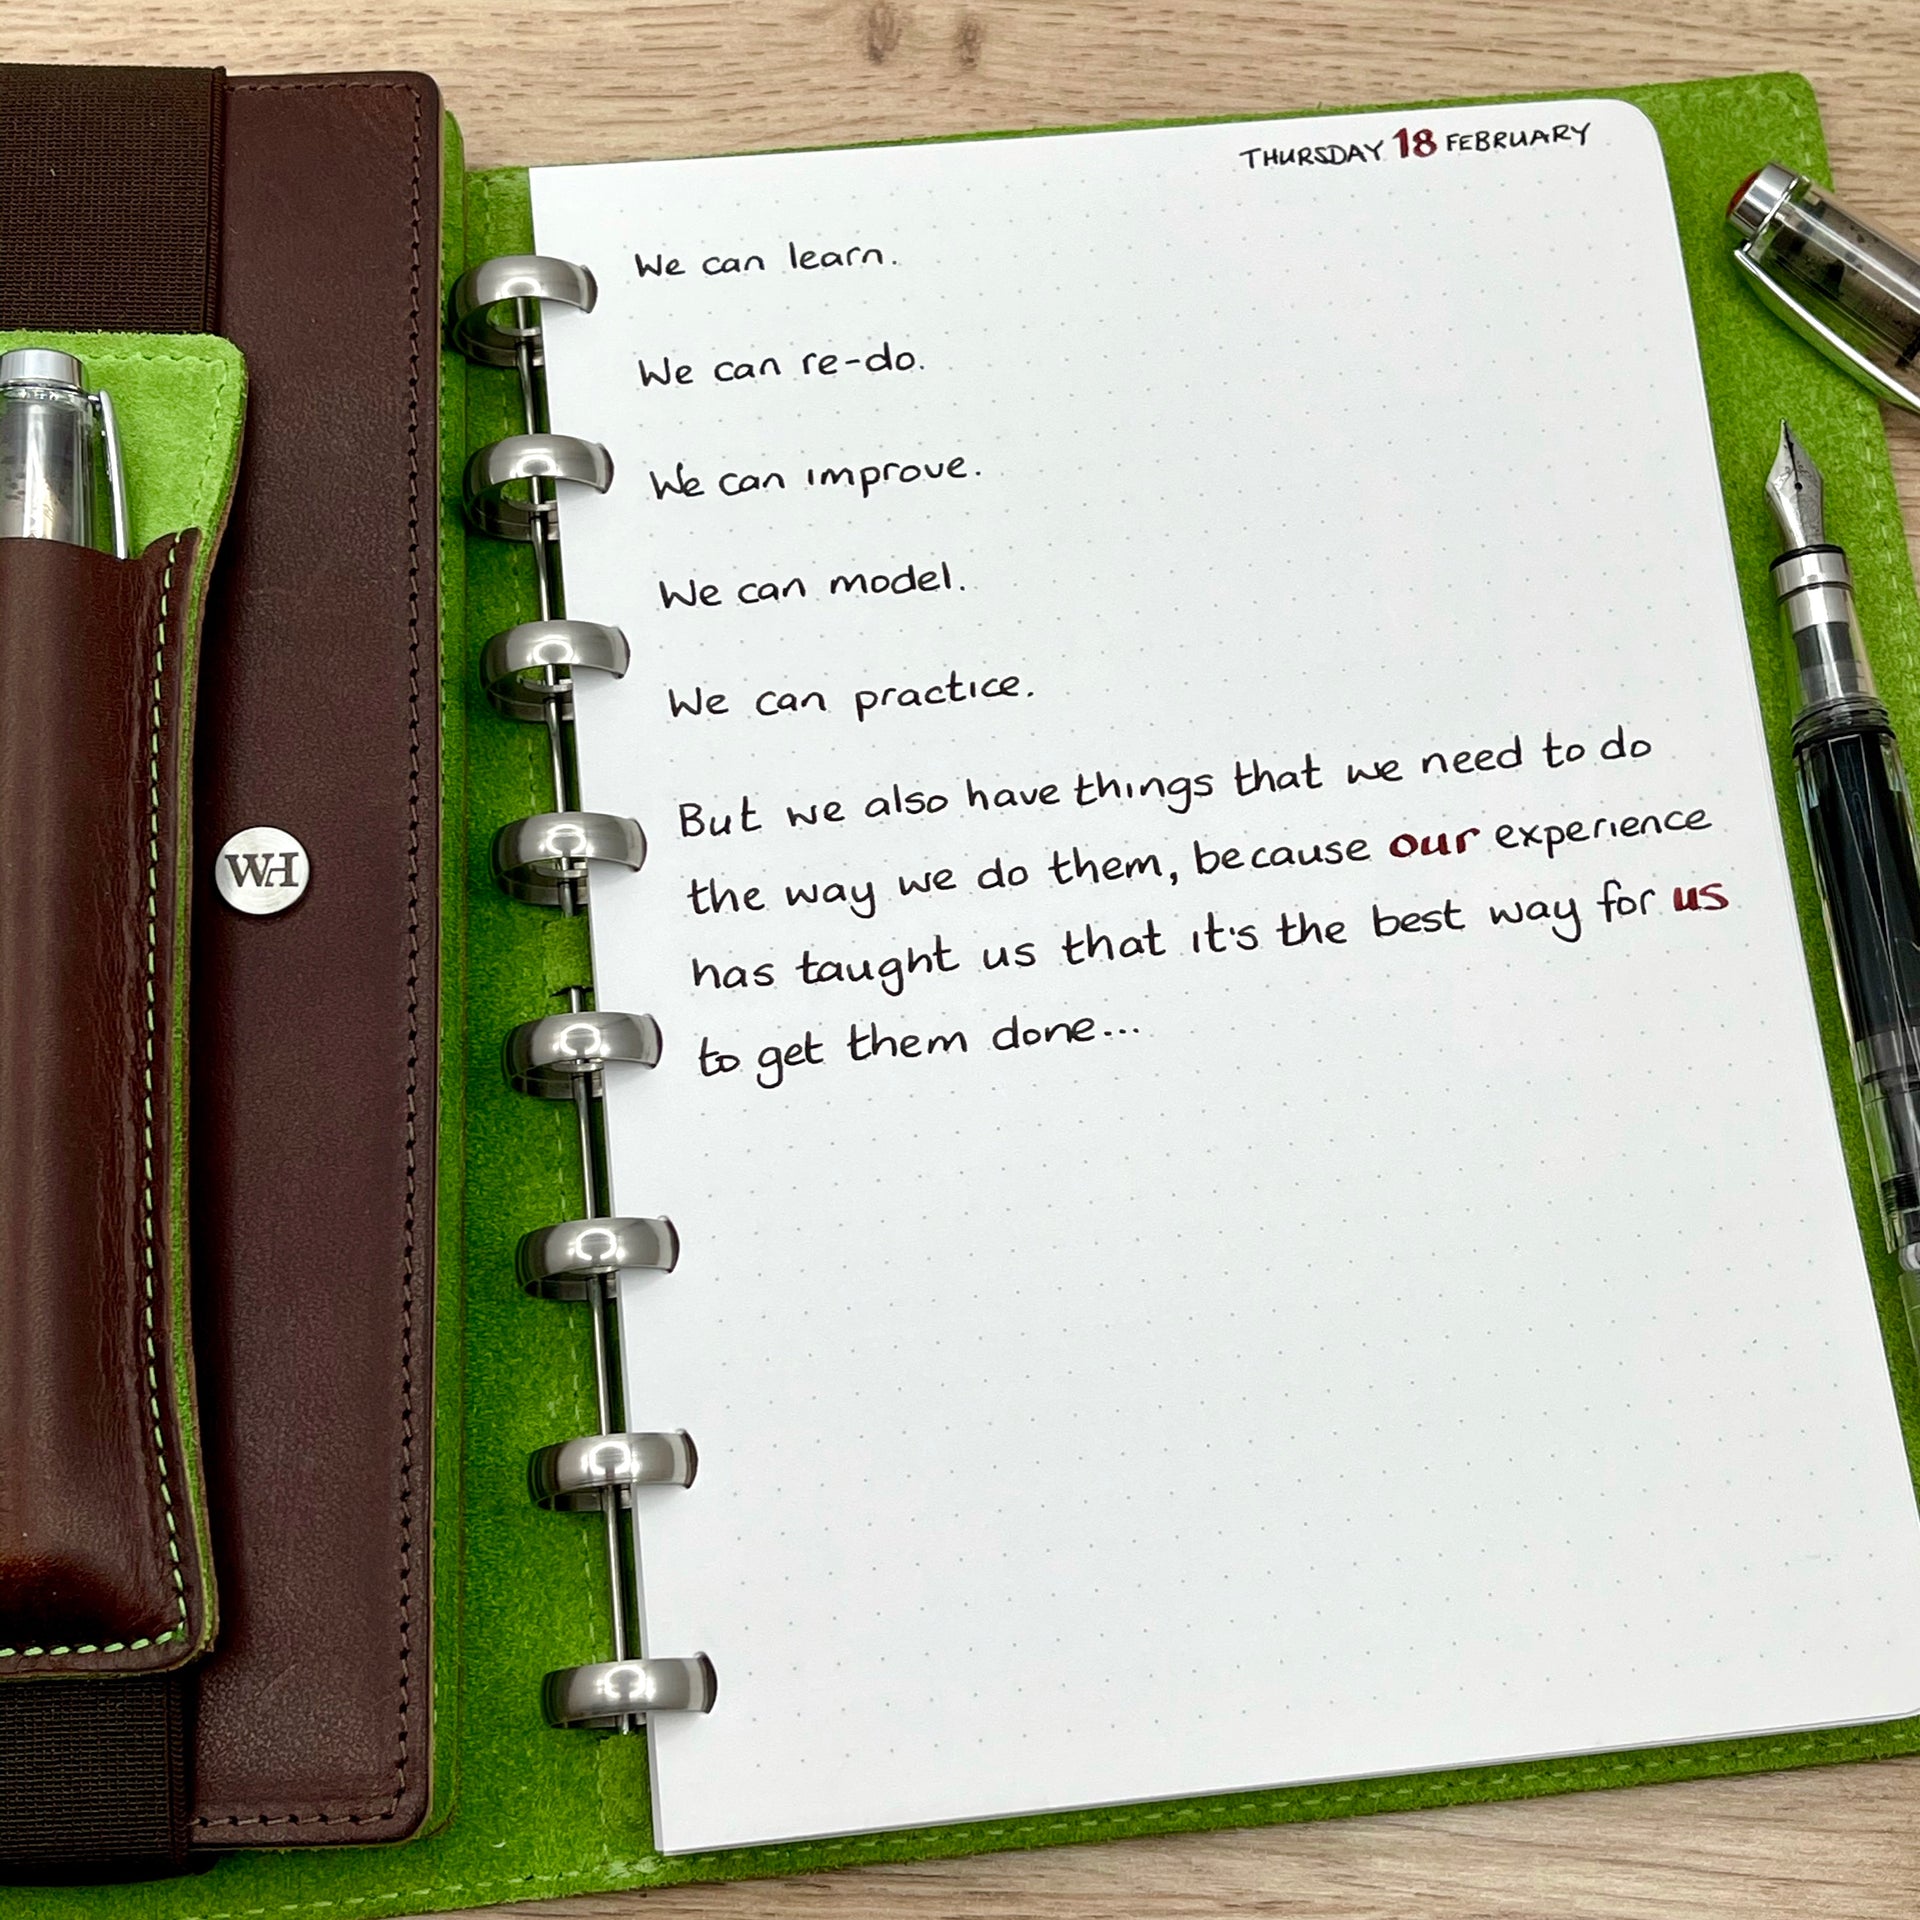 THURSDAY 18 FEBRUARY
We can learn.
We can re-do.
We can improve.
We can model.
We can practice.
But we also have things that we need to do
the way we do them, because our experience
has taught us that it's the best way for us
to get them done...
WH